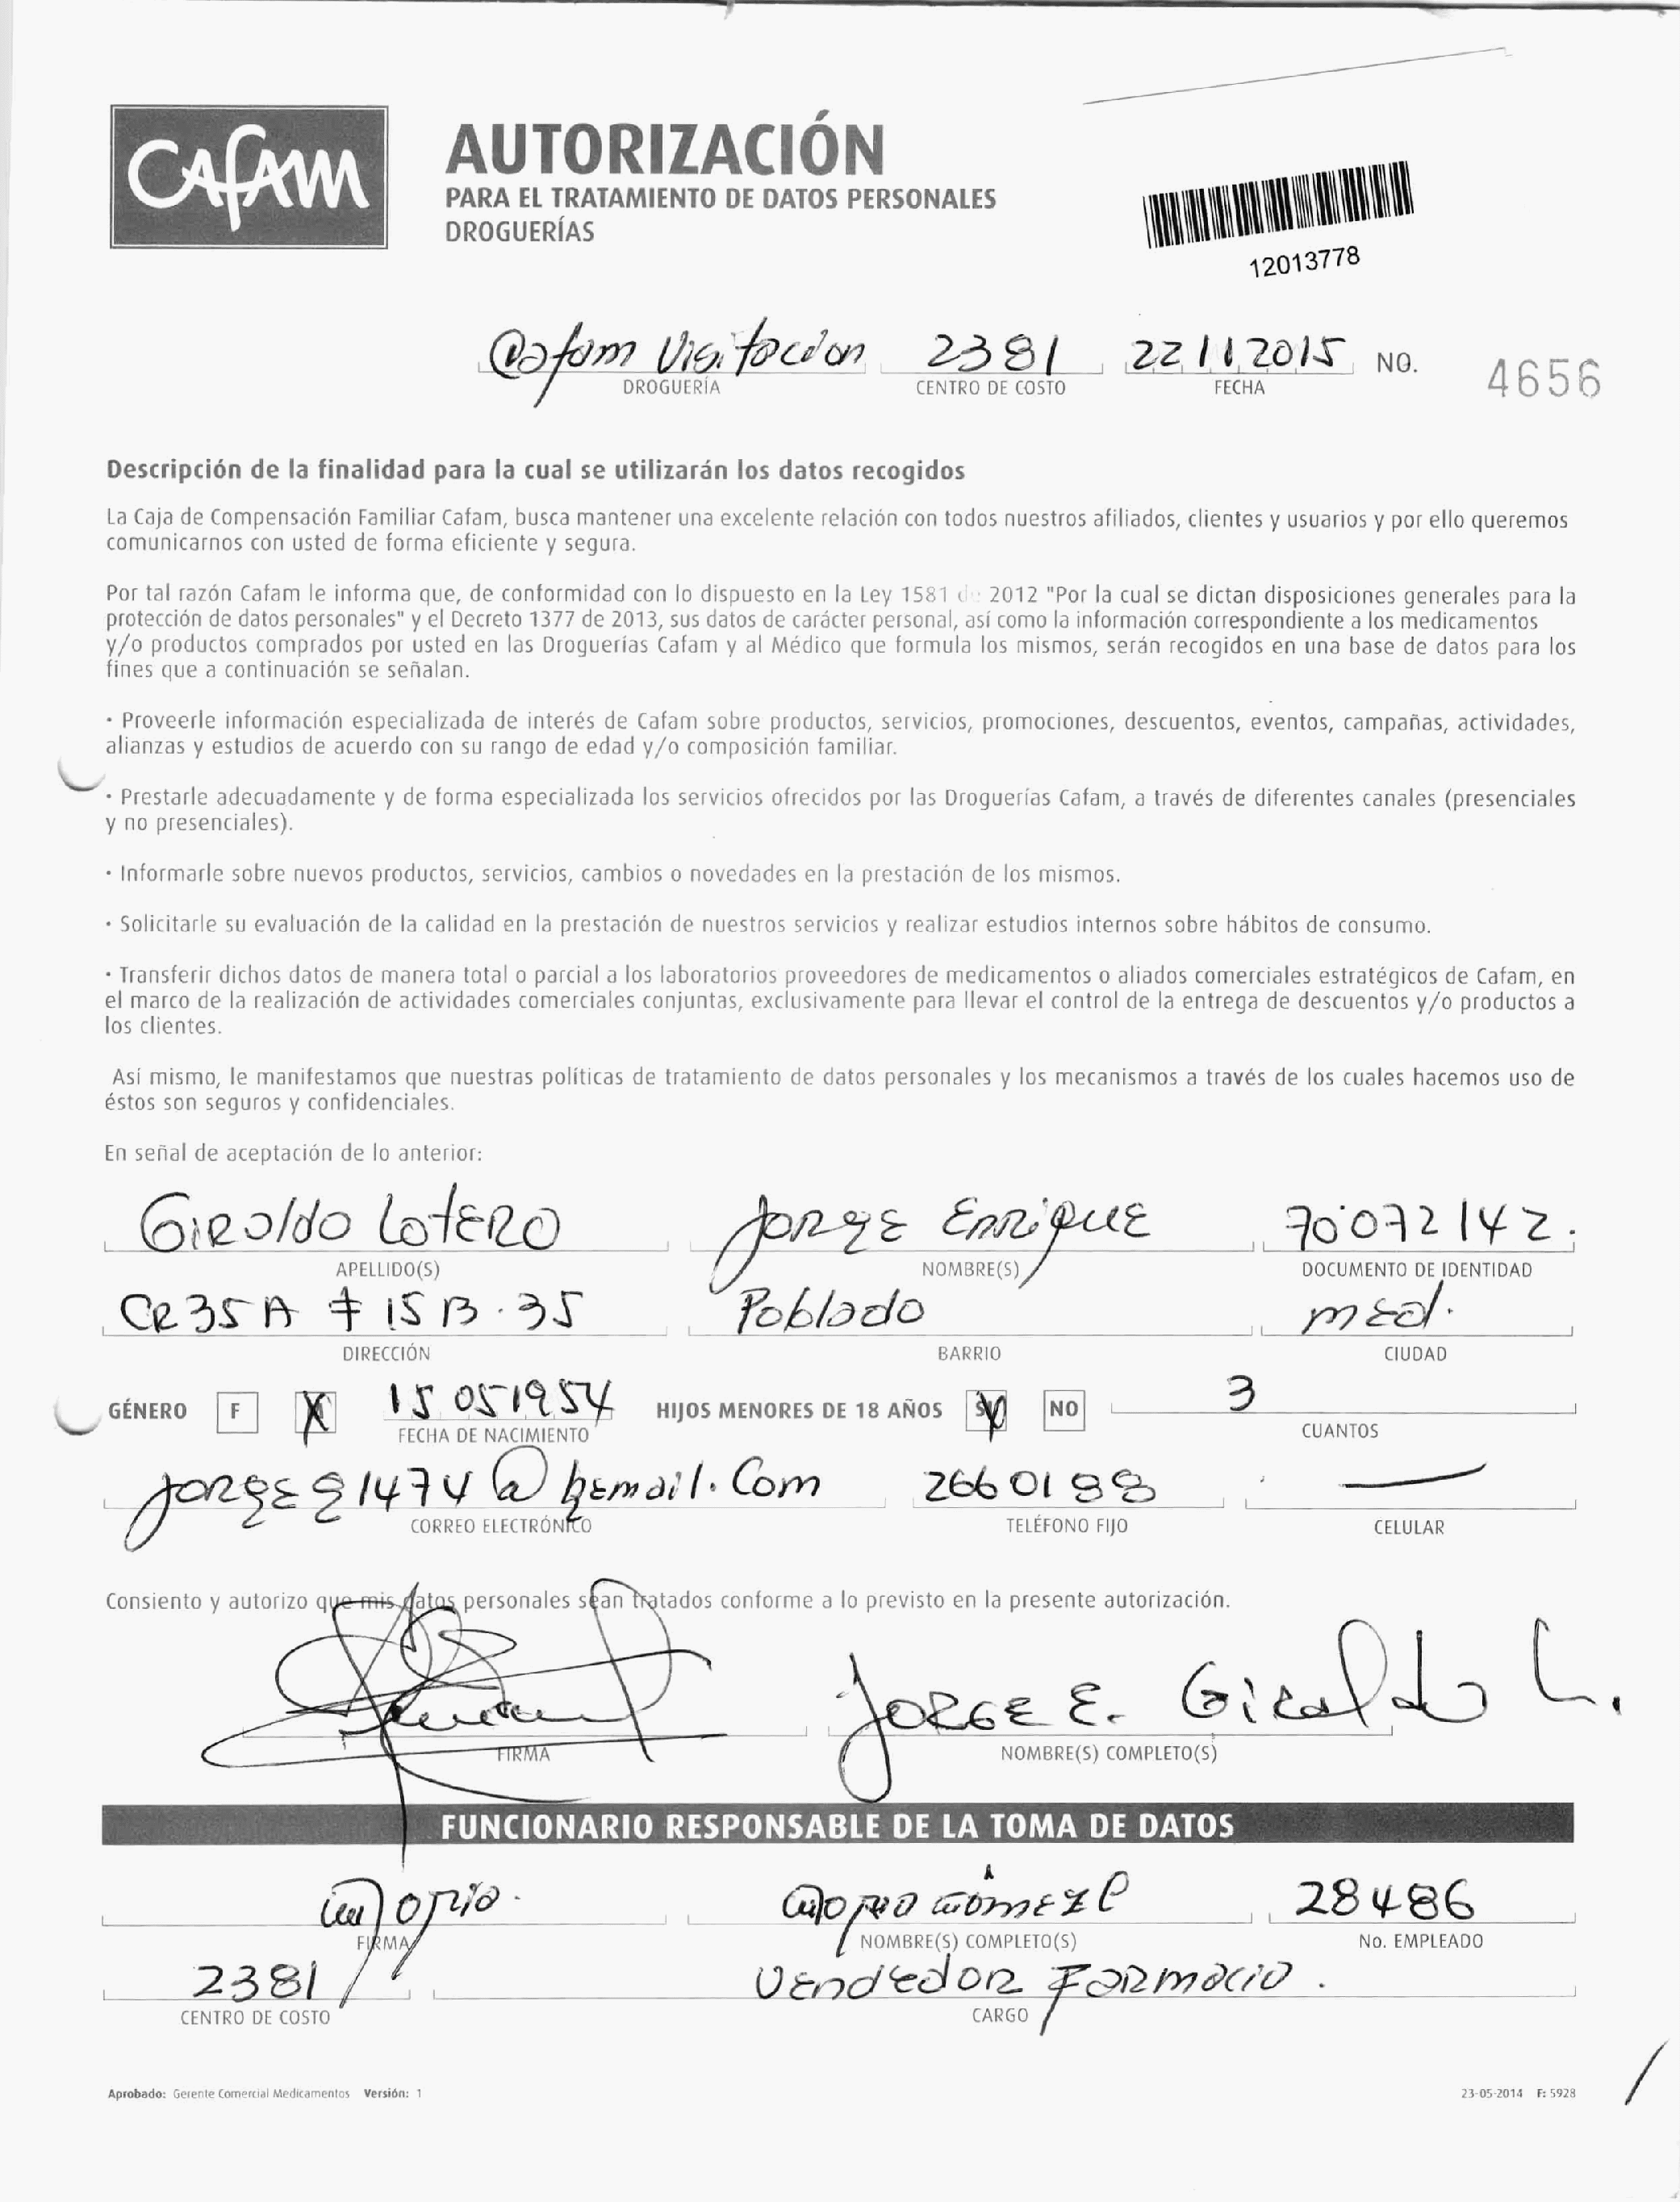 CAFAM
AUTORIZACIÓN
PARA EL TRATAMIENTO DE DATOS PERSONALES
DROGUERÍAS
12013778
Cafam Visitacion 2381 22 11 2015 NO. 4656
DROGUERÍA CENTRO DE COSTO FECHA
Descripción de la finalidad para la cual se utilizarán los datos recogidos
La Caja de Compensación Familiar Cafam, busca mantener una excelente relación con todos nuestros afiliados, clientes y usuarios y por ello queremos
comunicarnos con usted de forma eficiente y segura.
Por tal razón Cafam le informa que, de conformidad con lo dispuesto en la Ley 1581 de 2012 "Por la cual se dictan disposiciones generales para la
protección de datos personales" y el Decreto 1377 de 2013, sus datos de carácter personal, así como la información correspondiente a los medicamentos
y/o productos comprados por usted en las Droguerías Cafam y al Médico que formula los mismos, serán recogidos en una base de datos para los
fines que a continuación se señalan.
• Proveerle información especializada de interés de Cafam sobre productos, servicios, promociones, descuentos, eventos, campañas, actividades,
alianzas y estudios de acuerdo con su rango de edad y/o composición familiar.
• Prestarle adecuadamente y de forma especializada los servicios ofrecidos por las Droguerías Cafam, a través de diferentes canales (presenciales
y no presenciales).
• Informarle sobre nuevos productos, servicios, cambios o novedades en la prestación de los mismos.
• Solicitarle su evaluación de la calidad en la prestación de nuestros servicios y realizar estudios internos sobre hábitos de consumo.
• Transferir dichos datos de manera total o parcial a los laboratorios proveedores de medicamentos o aliados comerciales estratégicos de Cafam, en
el marco de la realización de actividades comerciales conjuntas, exclusivamente para llevar el control de la entrega de descuentos y/o productos a
los clientes.
Así mismo, le manifestamos que nuestras políticas de tratamiento de datos personales y los mecanismos a través de los cuales hacemos uso de
éstos son seguros y confidenciales.
En señal de aceptación de lo anterior:
Giraldo Lotero Jorge Enrique 70'072142.
APELLIDO(S) NOMBRE(S) DOCUMENTO DE IDENTIDAD
CR 35 A # 15 B . 35 Poblado med.
DIRECCIÓN BARRIO CIUDAD
GÉNERO F X 15 05 1954 HIJOS MENORES DE 18 AÑOS SI NO 3
FECHA DE NACIMIENTO CUANTOS
@ hotmail.Com 2660188 —
CORREO ELECTRÓNICO TELÉFONO FIJO CELULAR
Consiento y autorizo que mis datos personales sean tratados conforme a lo previsto en la presente autorización.
JORGE E. Giraldo L.
FIRMA NOMBRE(S) COMPLETO(S)
FUNCIONARIO RESPONSABLE DE LA TOMA DE DATOS
28486
FIRMA NOMBRE(S) COMPLETO(S) No. EMPLEADO
2381 Vendedor Farmacia.
CENTRO DE COSTO CARGO
Aprobado: Gerente Comercial Medicamentos Versión: 1 23-05-2014 F: 5928